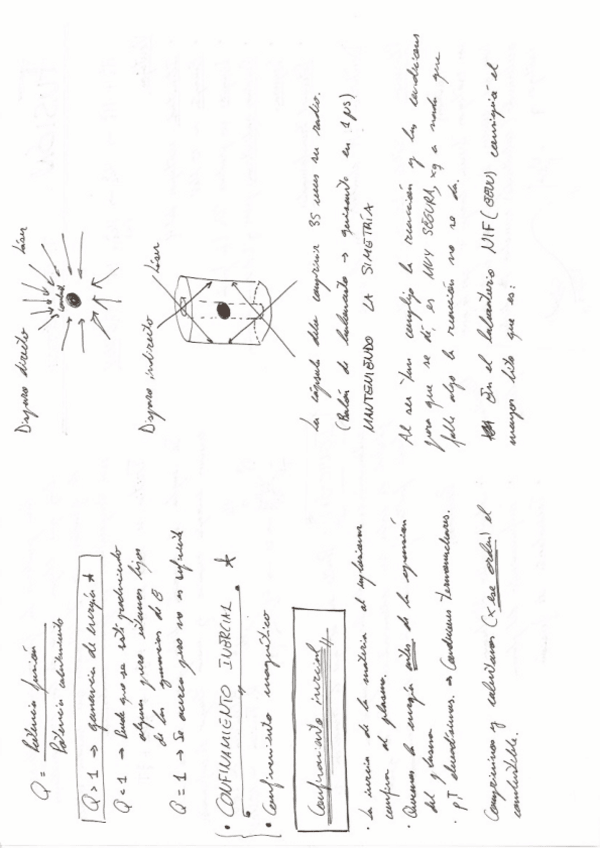 Q = Potencia fusión
Potencia calentamiento
Q > 1 → ganancia de energía ★
Q < 1 → Puede que se esté produciendo
alguna pero estamos lejos
de las ganancias de
Q = 1 → Se acerca pero no es suficiente
• CONFINAMIENTO INERCIAL ★
• Confinamiento magnético
Confinamiento inercial
• La inercia de la materia al
confina al plasma.
• Quemar la energía antes de la expansión
del plasma
• ρ, T elevadísimas. → Condiciones termonucleares.
Comprimimos y calentamos (x ese orden) el
combustible.
Disparo directo Láser
Disparo indirecto Láser
La cápsula debe comprimir 35 veces su radio.
(Balón de baloncesto → guisante en 1 μs)
MANTENIENDO LA SIMETRÍA
Al ser tan complejo la reacción y las condiciones
para que se dé, es MUY SEGURA, xq a nada que
falle algo la reacción no se da.
En el laboratorio NIF (EEUU) consiguió el
mayor hito que es: